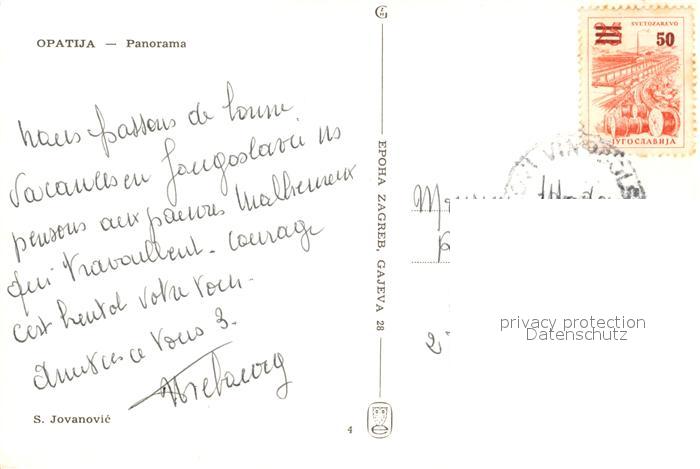 OPATIJA — Panorama
nous passons de bonne
vacances en Jougoslavie ns
pensons aux pauvres malheureux
qui travaillent. courage
c'est bientot votre tour.
Amities a vous 3.
S. Jovanović
4
EPOHA ZAGREB, GAJEVA 28
SVETOZAREVO
50
ЈУГОСЛАВИЈА
privacy protection
Datenschutz